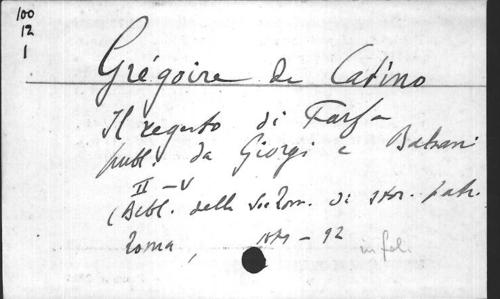 100
12
1
Grégoire de Catino
Il regesto di Farfa
publ. da Giorgi e Balzani
II-V
(Bibl. della Soc Rom. di stor. patr.
Roma, 1879-92
in fol.